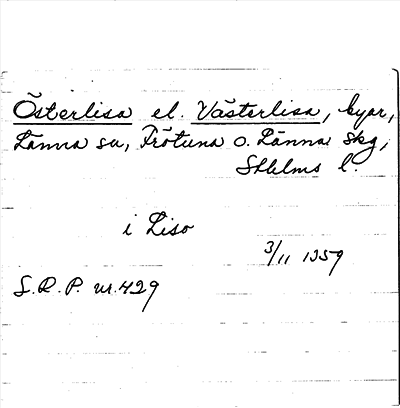 Österlisa el. Västerlisa, byar,
Länna sn, Frötuna o. Länna skg,
Sthlms l.
i Liso
3/11 1359
S.R.P. nr.429